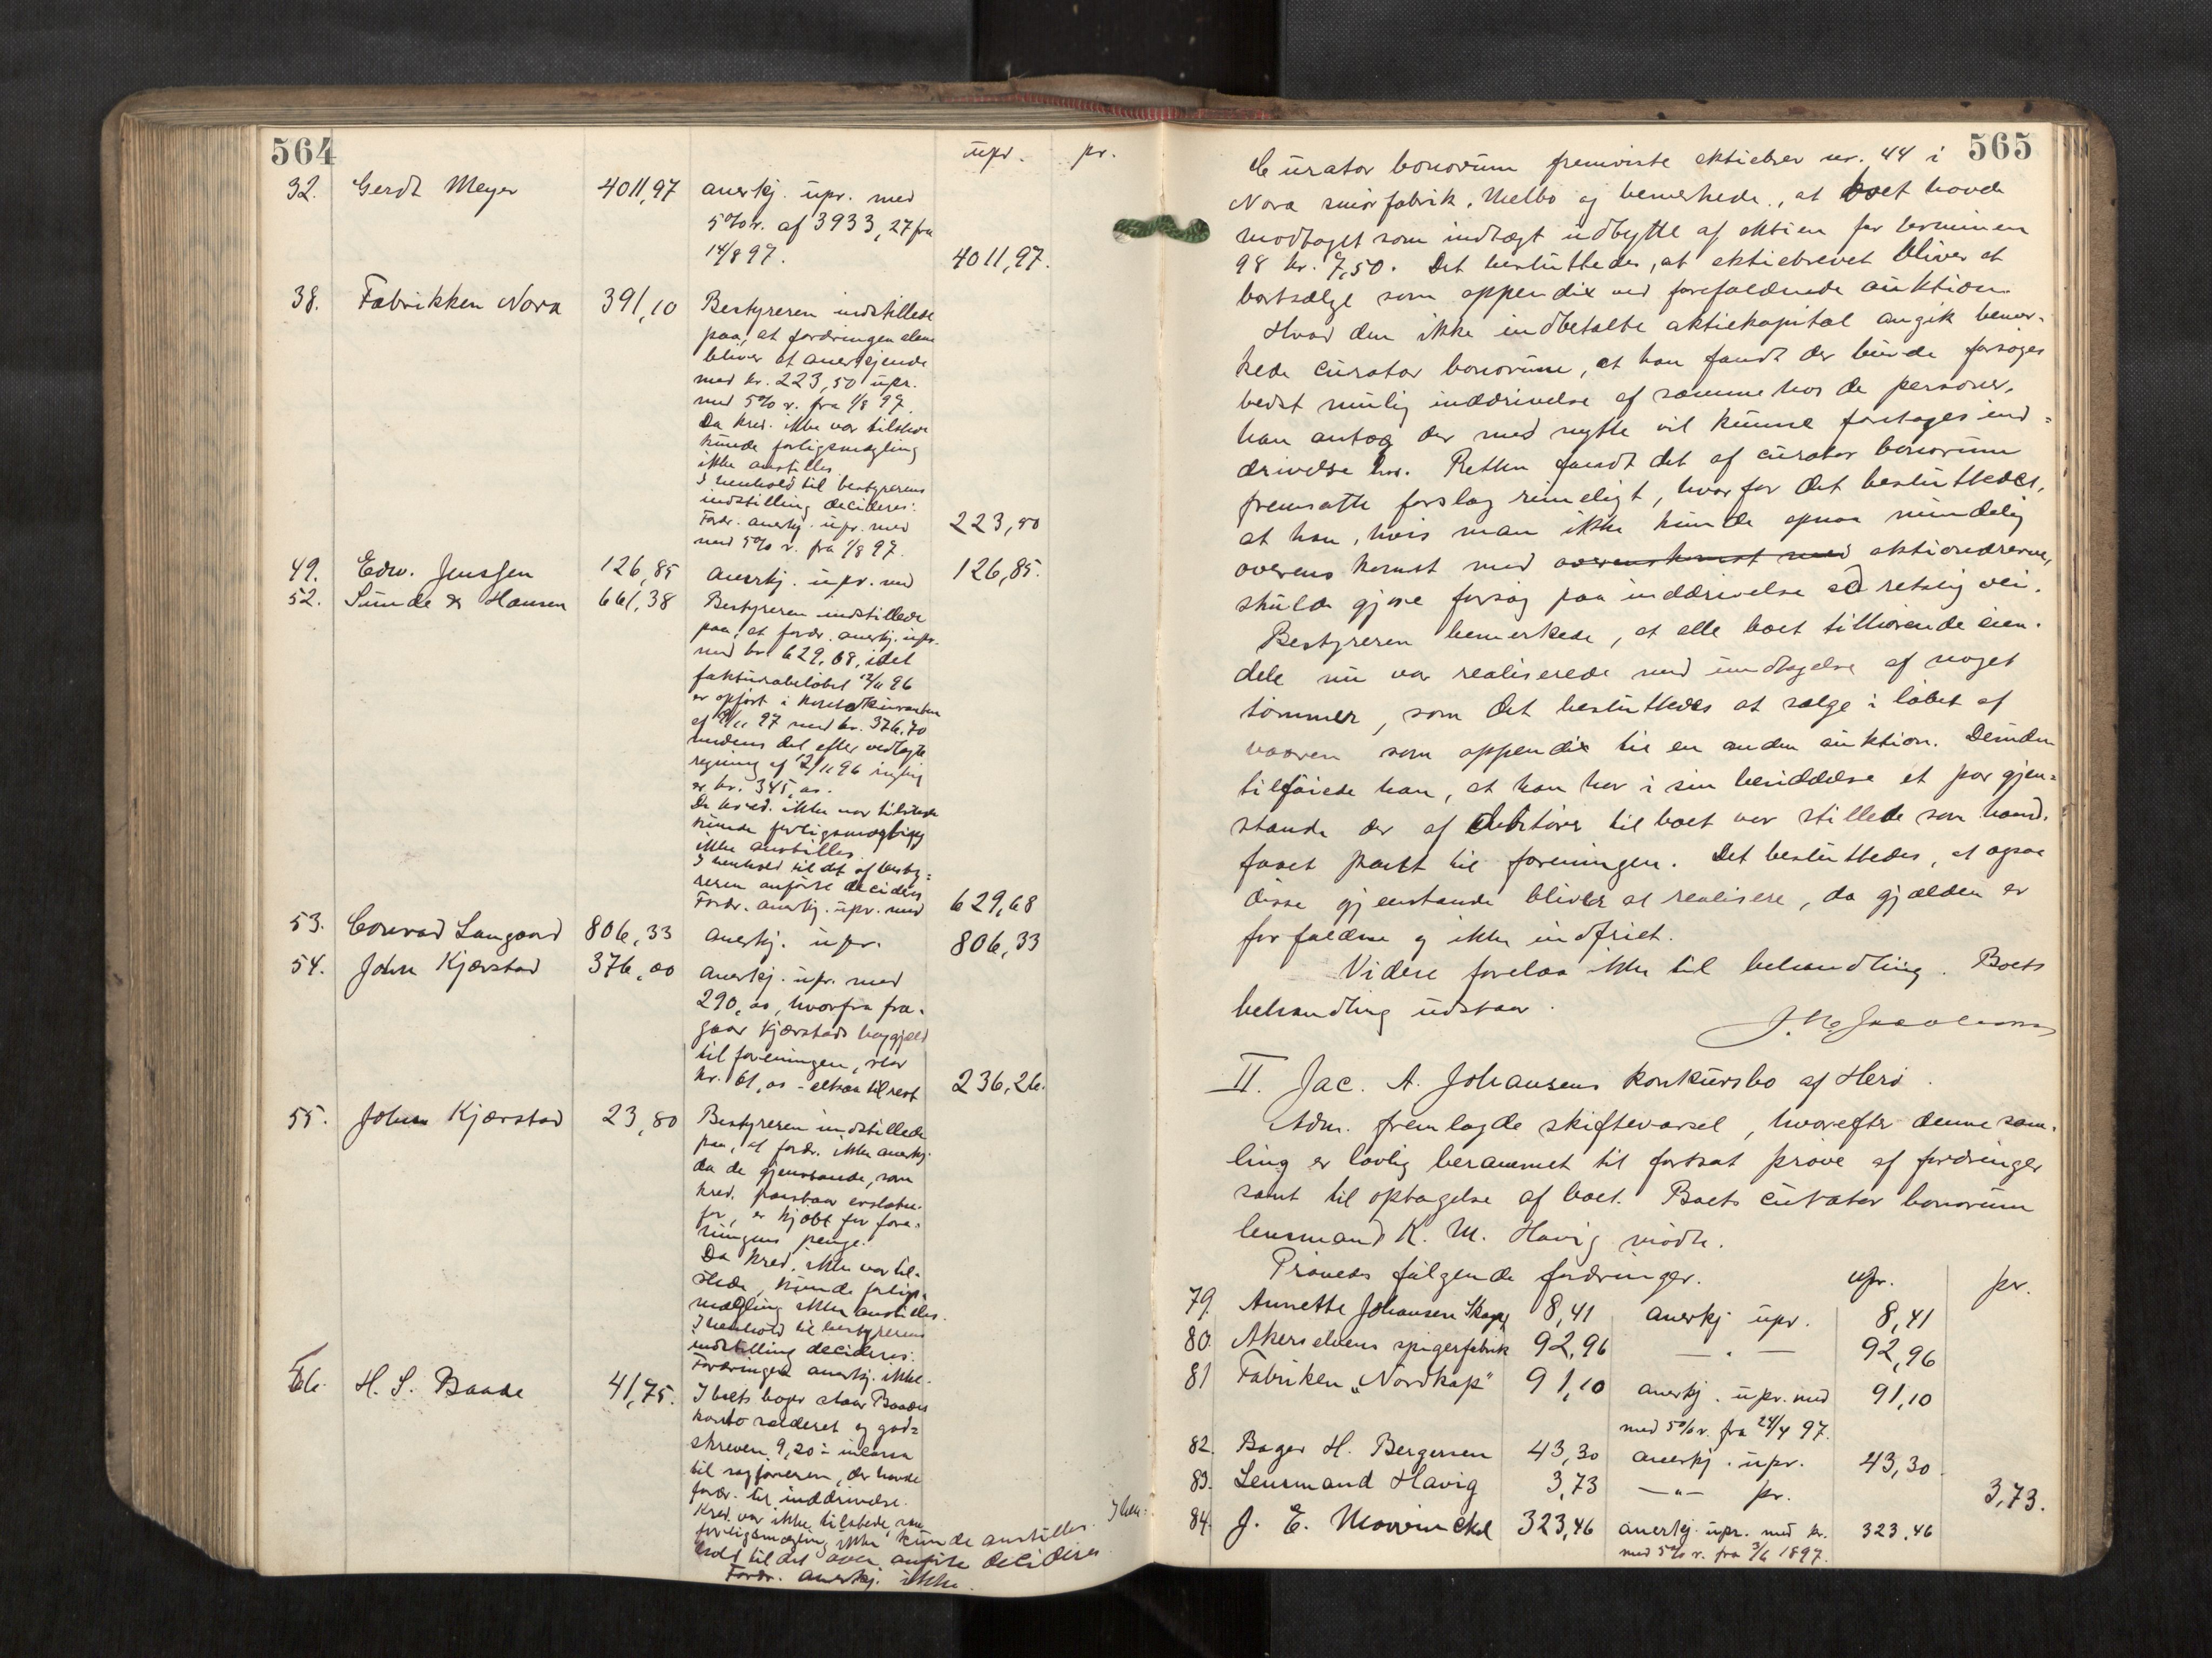 564
upr. pr.
32. Gerdt Meyer 4011,97 anerkj. upr. med
5% r. af 3933,27 fra
14/8 97. 4011,97.
38. Fabrikken Nora 391,10 Bestyreren indstillede
paa, at fordringen alene
bliver at anerkjende
med kr. 223,50 upr.
med 5% r. fra 1/8 97.
Da kred. ikke var tilstede
kunde forligsmægling
ikke anstilles.
I henhold til bestyrerens
indstilling decideres:
Fordr. anerkj. upr. med 223,50
med 5% r. fra 1/8 97.
49. Edw. Jenssen 126,85 anerkj. upr. med 126,85.
52. Sunde & Hansen 661,38 Bestyreren indstillede
paa, at fordr. anerkj. upr.
med kr 629,68, idet
fakturabeløbet 12/11 96
er opført i kontokuranten
af 9/11 97 med kr. 376,70
medens det efter vedlagte
regning af 12/11 96 
er kr. 345,00.
Da kred. ikke var tilstede
kunde forligsmægling
ikke anstilles.
I henhold til det af besty=
reren anførte decideres
Fordr. anerkj. upr. med 629,68
53. Conrad Langaard 806,33 anerkj. upr. 806,33
54. John Kjærstad 376,00 anerkj. upr. med
290,00, hvorfra fra-
gaar Kjærstads 
til foreningen, stor
kr. 61,00 - altsaa til rest 236,26.
55. Johan Kjærstad 23,80 Bestyreren indstillede
paa, at fordr. ikke anerkj.
da de gjenstande, som
kred. paastaar erstatn.
for, er kjøbt for fore-
ningens penge.
Da kred. ikke var til-
stede, kunde forligs-
mægling ikke anstilles.
I henhold til bestyrerens
indstilling decideres:
Fordringen anerkj. ikke.
56. H. S. Baade 41,75. I boets bøger staar Baades
konto salderet og god=
skreven 9,20 - 
til sagføreren, der havde
fordr. til inddrivelse.
Kred. var ikke tilstede, saa
forligsmægling ikke kunde anstilles. I hen=
hold til det oven anførte decideres
Fordr. anerkj. ikke.
565
Curator bonorum fremviste aktiebrev nr. 44 i
Nora smørfabrik, Melbo og bemerkede, at boet havde
modtaget som indtægt udbytte af aktien for terminen
98 kr. 7,50. Det besluttedes, at aktiebrevet bliver at
bortsælge som appendix ved forefaldende auktion.
Hvad den ikke indbetalte aktiekapital angik bemer-
kede curator bonorum, at han fandt der burde forsøges
bedst mulig inddrivelse af samme hos de personer,
han antog der med nytte vil kunne foretages ind=
drivelse hos. Retten fandt det af curator bonorum
fremsatte forslag rimeligt, hvorfor det besluttedes,
at han, hvis man ikke kunde opnaa mindelig
overenskomst med overenskomst med aktionærerne,
skulde gjøre forsøg paa inddrivelse ad retslig vei.
Bestyreren bemerkede, at alle boet tilhørende eien-
dele nu var realiserede med undtagelse af noget
tømmer, som det besluttedes at sælge i løbet af
vaaren som appendix til en anden auktion. Desuden
tilføiede han, at han har i sin besiddelse et par gjen=
stande der af debitorer til boet var stillede som haand-
faaet pant til foreningen. Det besluttedes, at ogsaa
disse gjenstande bliver at realisere, da gjælden er
forfalden og ikke indfriet.
Videre forelaa ikke til behandling. Boets
behandling udstaar.
II. Jac. A. Johansens konkursbo af Herø.
Adm. fremlagde skiftevarsel, hvorefter denne sam-
ling er lovlig berammet til fortsat prøve af fordringer
samt til optagelse af boet. Boets curator bonorum
lensmand K. M. Havig mødte.
Prøvedes følgende fordringer. upr. pr.
79. Annette Johansen 8,41 anerkj upr. 8,41
80. Akerselvens spigerfabrik 92,96 — " — 92,96
81 Fabriken "Nordkap" 91,10 anerkj. upr. med 91,10
med 5% r. fra 24/4 97.
82. Bager H. Bergersen 43,30 anerkj. upr. 43,30
83. Lensmand Havig 3,73 — " — pr. 3,73.
84. J. E. Mowinckel 323,46 anerkj. upr. med kr. 323,46
med 5% r. fra 3/6 1897.